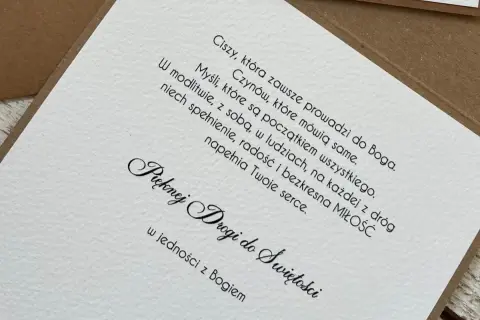 Ciszy, która zawsze prowadzi do Boga.
Czynów, które mówią same.
Myśli, które są początkiem wszystkiego.
W modlitwie, z sobą, w ludziach, na każdej z dróg
niech spełnienie, radość i bezkresna MIŁOŚĆ
napełnia Twoje serce.
Pięknej Drogi do Świętości
w jedności z Bogiem